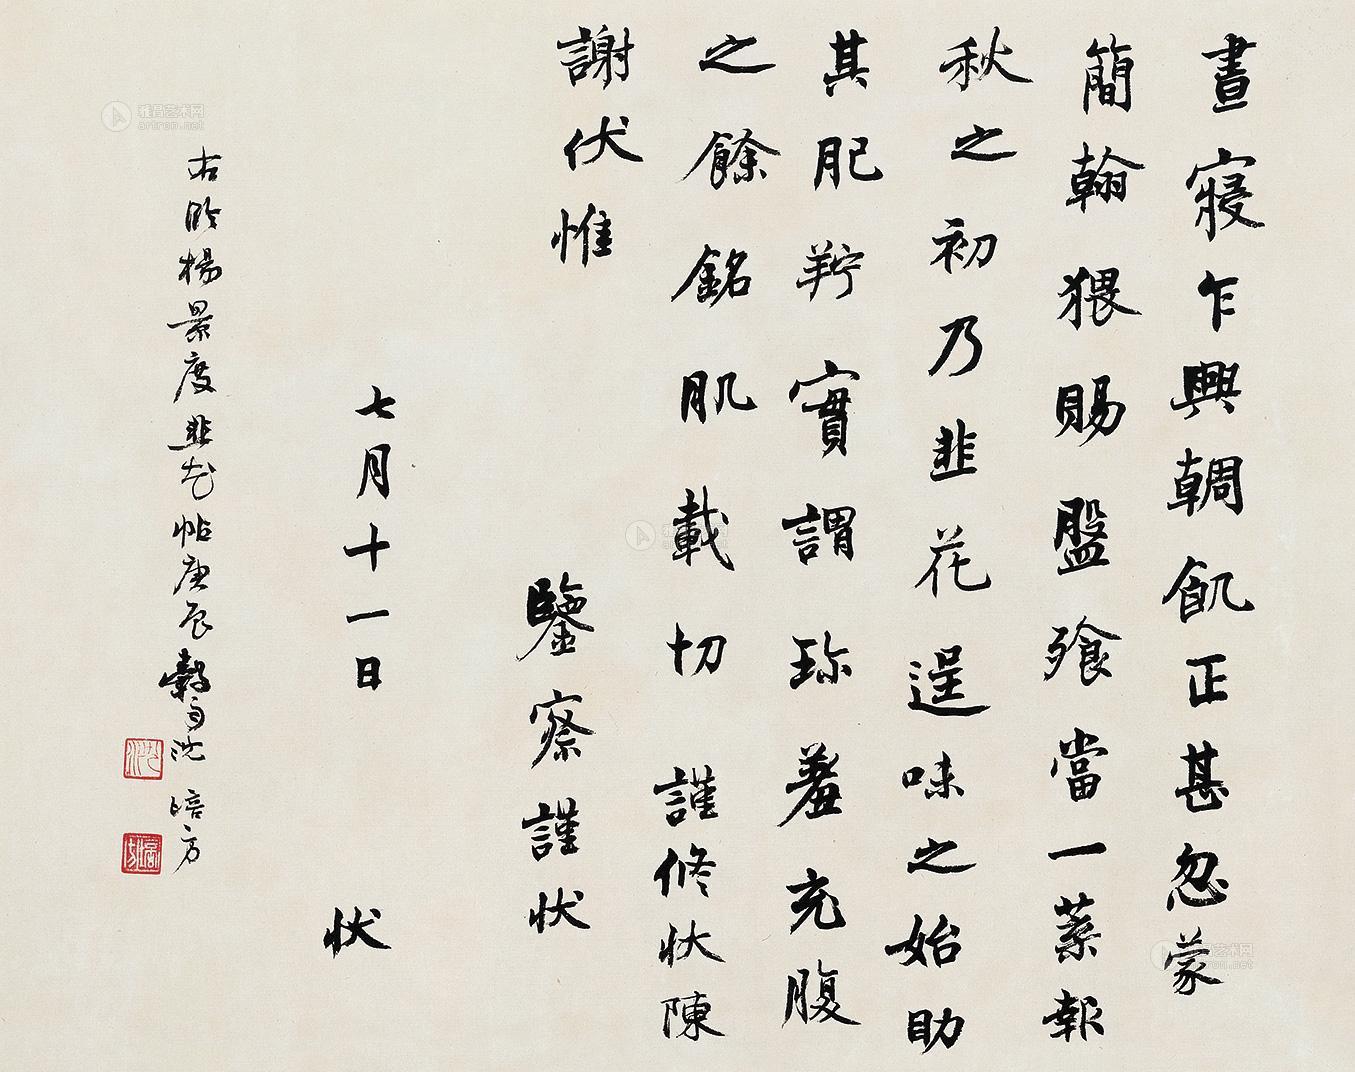 晝寢乍興輖飢正甚忽蒙
簡翰猥賜盤飧當一葉報
秋之初乃韭花逞味之始助
其肥羜實謂珍羞充腹
之餘銘肌載切謹脩状陳
謝伏惟
鑒察謹状
七月十一日
状
右臨楊景度韭花帖庚辰穀雨沈培方
沈
培方
雅昌艺术网
artron.net